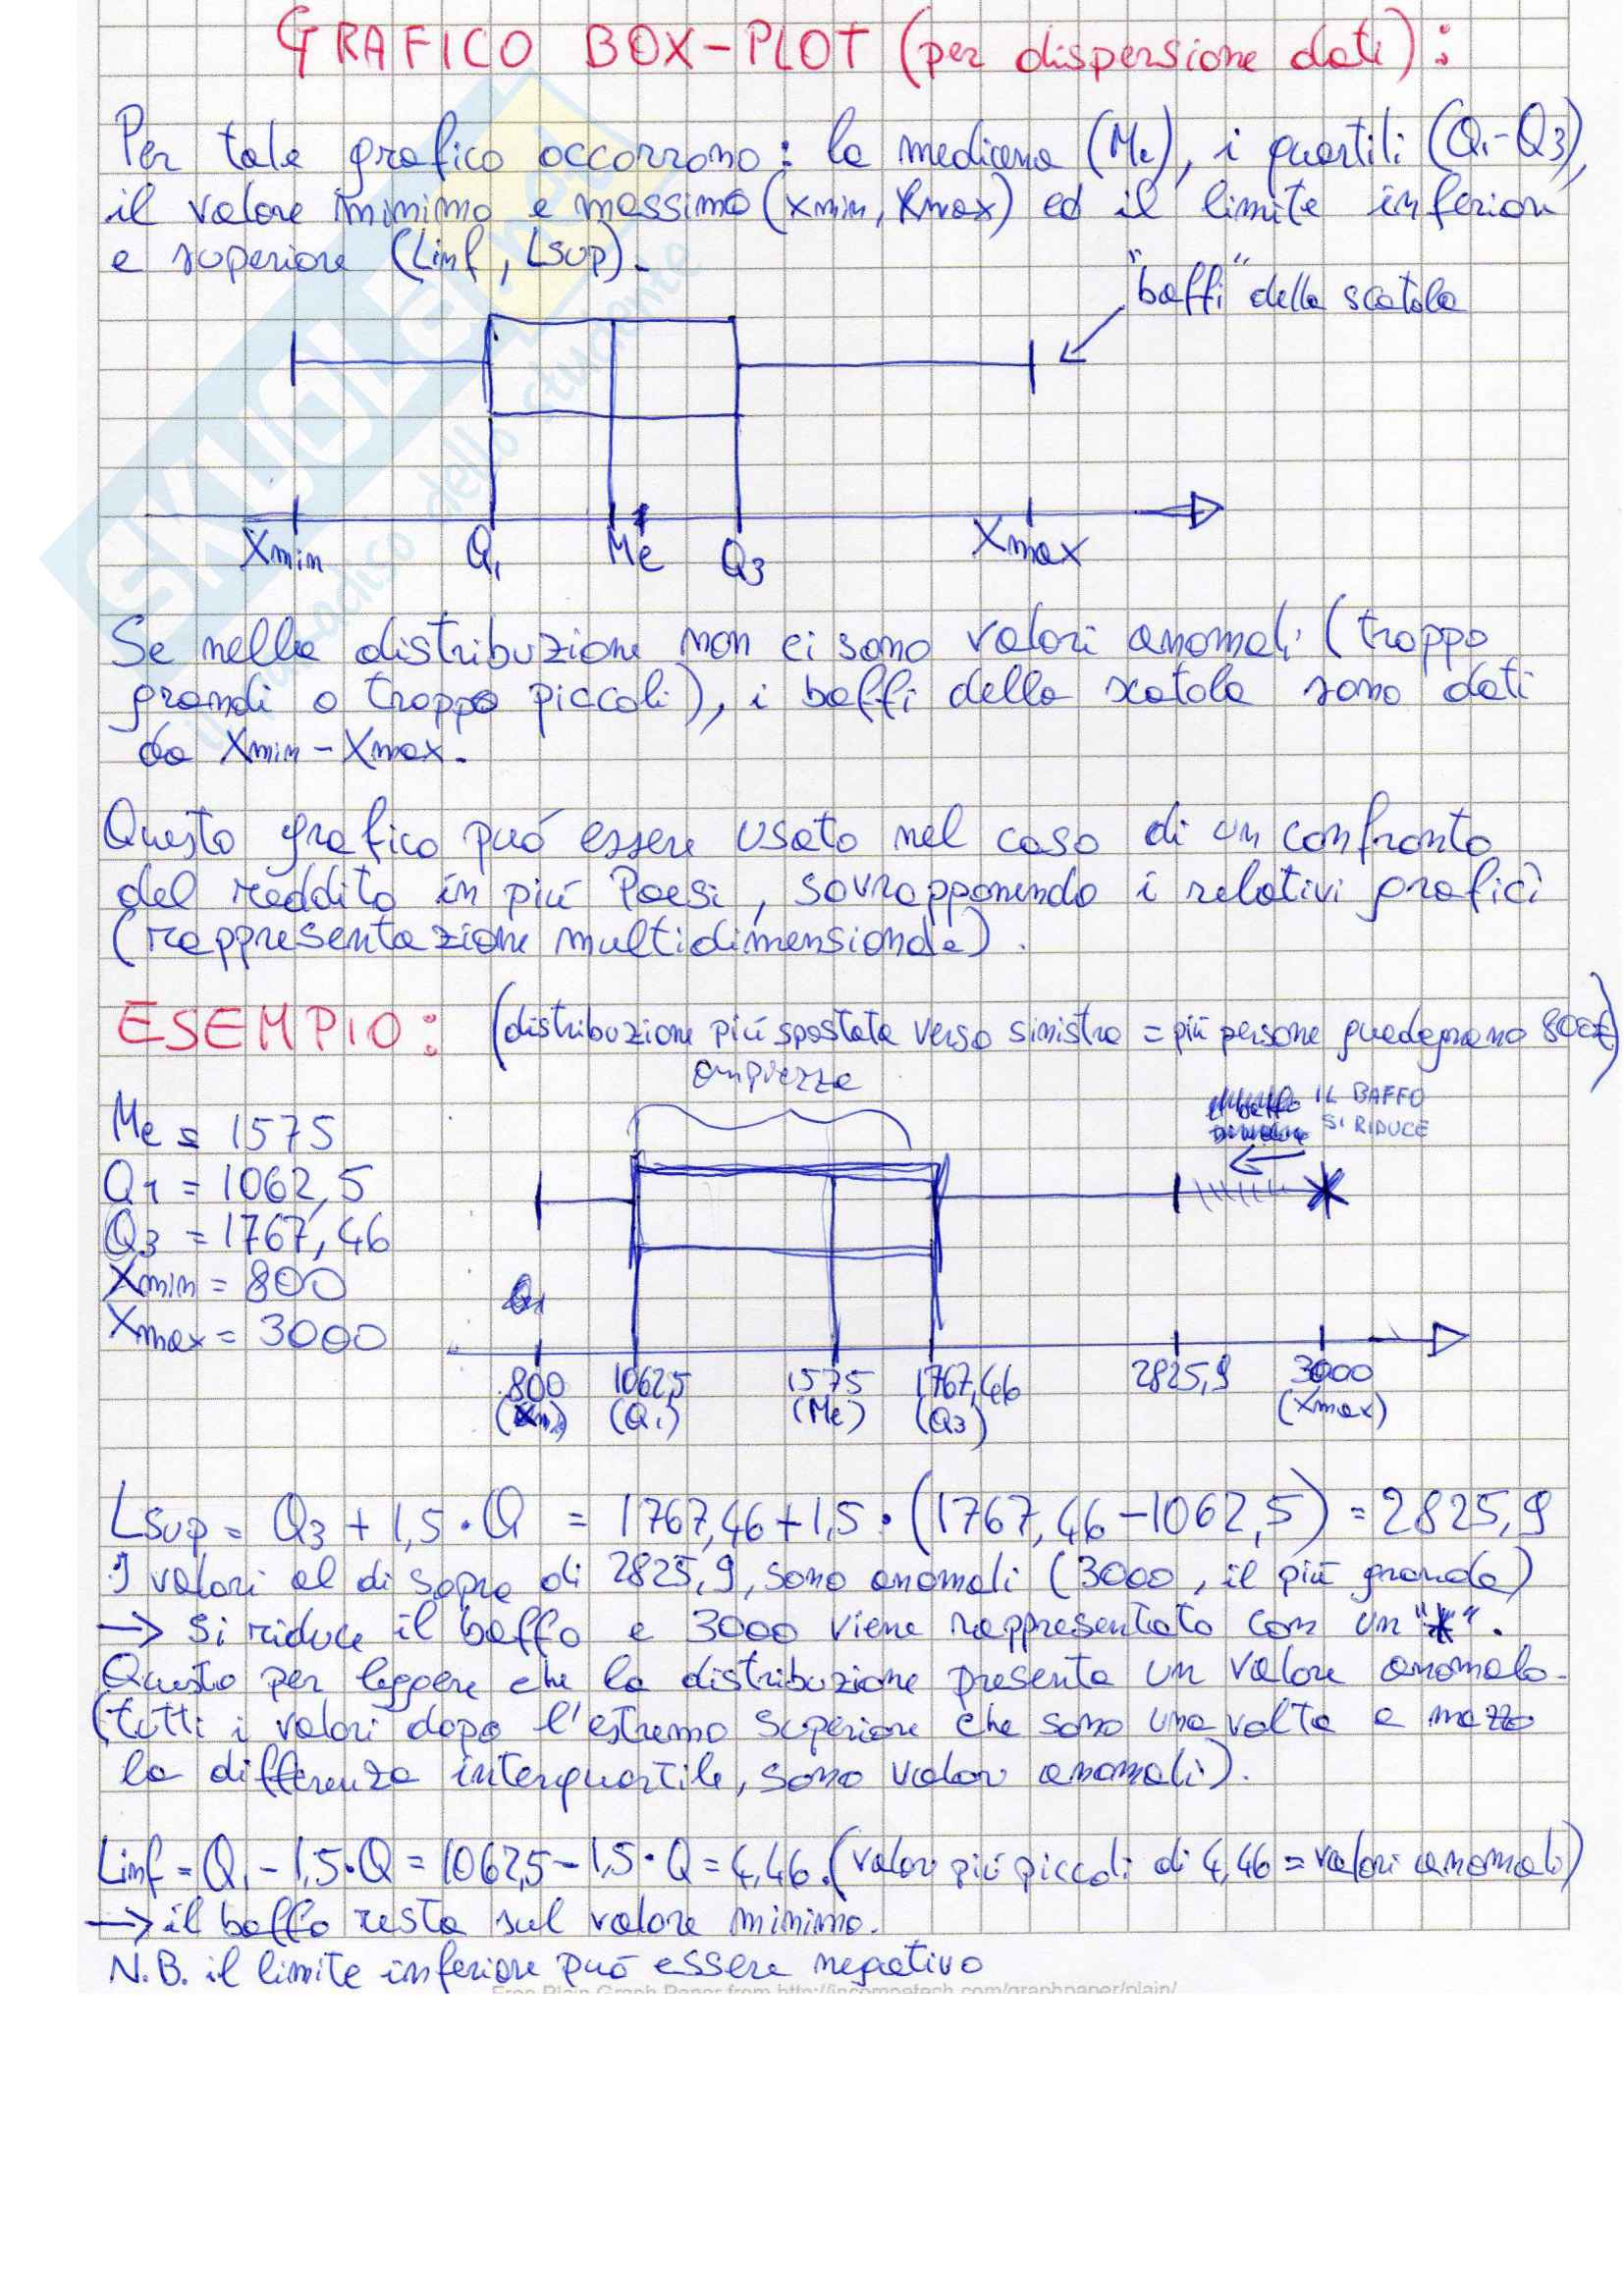 GRAFICO BOX-PLOT (per dispersione dati):
Per tale grafico occorrono: la mediana (Me), i quartili (Q1-Q3),
il valore minimo e massimo (xmin, xmax) ed il limite inferiore
e superiore (Linf, Lsup).
"baffi" della scatola
Xmin Q1 Me Q3 Xmax
Se nella distribuzione non ci sono valori anomali (troppo
grandi o troppo piccoli), i baffi della scatola sono dati
da Xmin - Xmax.
Questo grafico può essere usato nel caso di un confronto
del reddito in più Paesi, sovrapponendo i relativi grafici
(rappresentazione multidimensionale).
ESEMPIO: (distribuzione più spostata verso sinistra = più persone guadagnano 800€)
ampiezza
IL BAFFO
SI RIDUCE
Me = 1575
Q1 = 1062,5
Q3 = 1767,46
Xmin = 800
Xmax = 3000
800 1062,5 1575 1767,46 2825,9 3000
(Q1) (Me) (Q3) (Xmax)
Lsup = Q3 + 1,5 · Q = 1767,46 + 1,5 · (1767,46 - 1062,5) = 2825,9
I valori al di sopra di 2825,9, sono anomali (3000, il più grande)
→ Si riduce il baffo e 3000 viene rappresentato con un "*".
Questo per leggere che la distribuzione presenta un valore anomalo.
(tutti i valori dopo l'estremo superiore che sono una volta e mezzo
la differenza interquartile, sono valori anomali).
Linf = Q1 - 1,5·Q = 1062,5 - 1,5·Q = 4,46. (valori più piccoli di 4,46 = valori anomali)
→ il baffo resta sul valore minimo.
N.B. il limite inferiore può essere negativo
Free Plain Graph Paper from http://incompetech.com/graphpaper/plain/
SKUOLA.net
paradiso dello studente